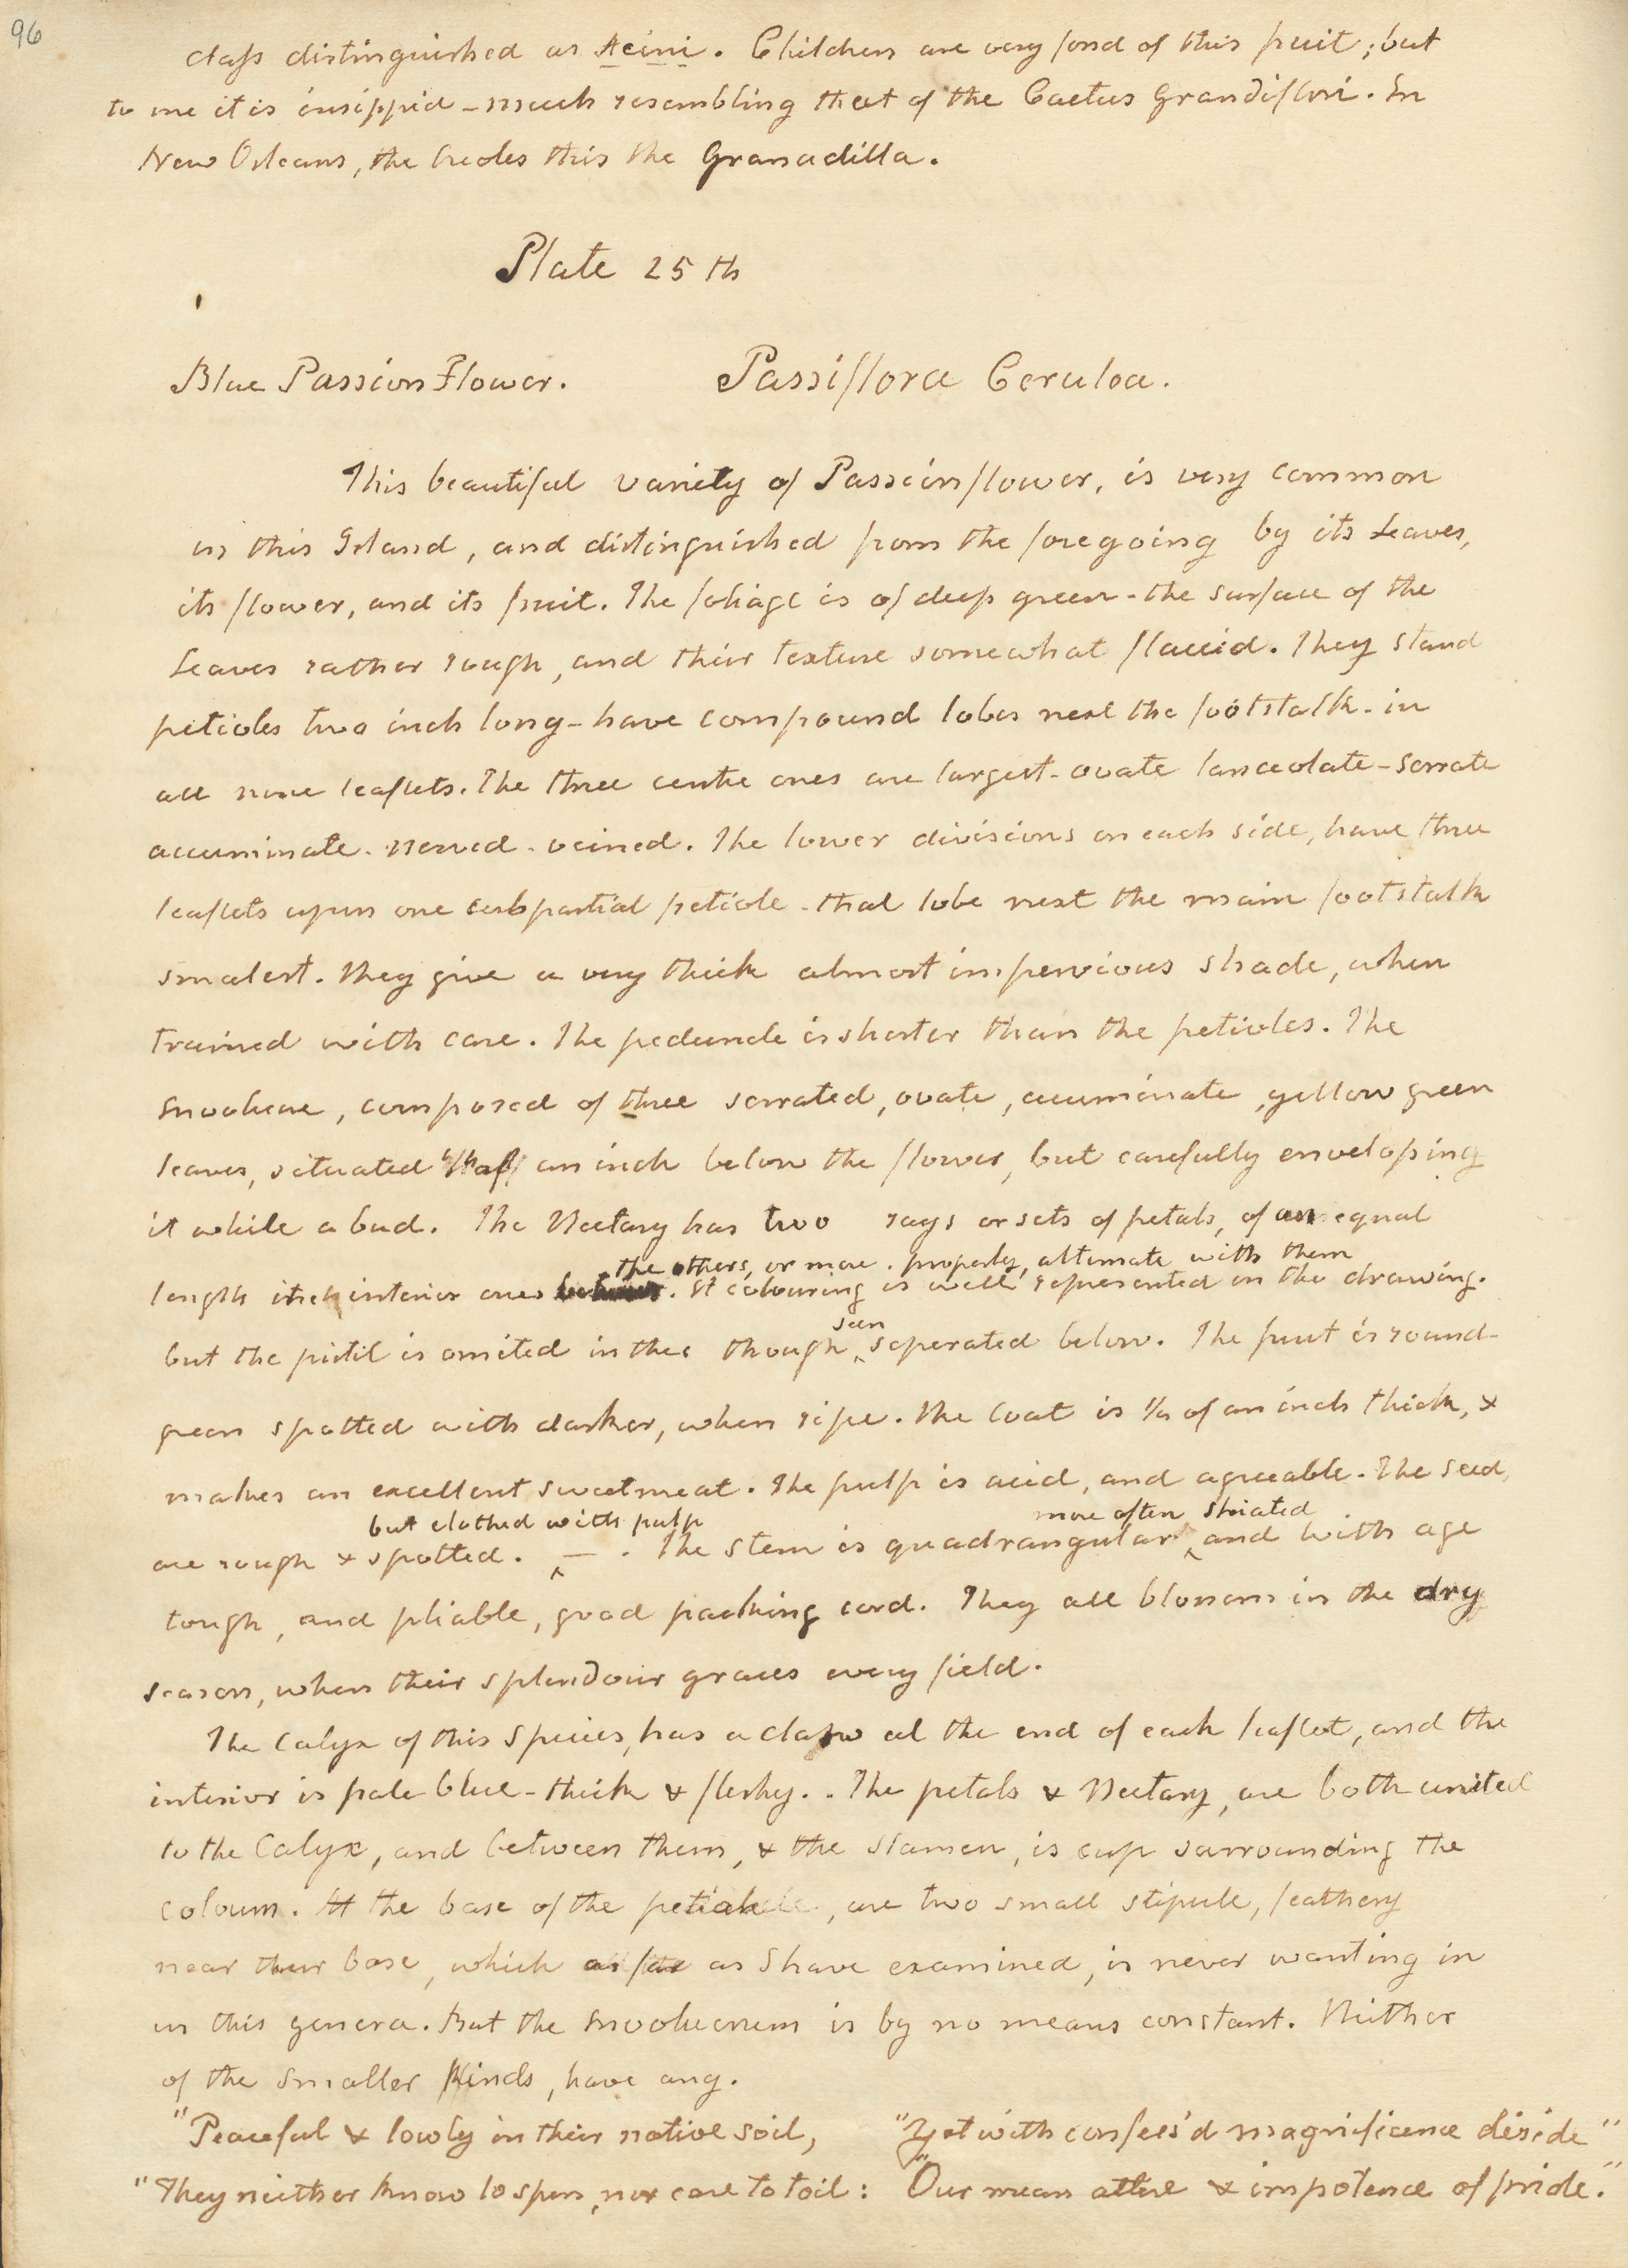 96
class distinguished as Acini. Children are very fond of this fruit; but
to me it is insippid - much resembling that of the Cactus Grandiflori. In
New Orleans, the Creoles this the Granadilla.
Plate 25th
Blue Passion Flower. Passiflora Cerulea.
This beautiful variety of Passionflower, is very common
in this Island, and distinguished from the foregoing by its Leaves,
its flower, and its fruit. The foliage is of deep green - the surface of the
Leaves rather rough, and their texture somewhat flaccid. They stand
petioles two inch long - have compound lobes next the footstalk - in
all nine leaflets. The three centre ones are largest - ovate lanceolate - serrate
accuminate - nerved - veined. The lower divisions on each side, have three
leaflets upon one subpartial petiole - that lobe next the main footstalk
smalest. They give a very thick almost impervious shade, when
trained with care. The peduncle is shorter than the petioles. The
Involucre, composed of three serrated, ovate, accuminate, yellow green
leaves, situated half an inch below the flower, but carefully enveloping
it while a bud. The Nectary has two rays or sets of petals, of unequal
the others, or more properly, alternate with them
length the interior ones . It colouring is well represented in the drawing.
but the pistil is omited in the though seen seperated below. The fruit is round -
green spotted with darker, when ripe. The Coat is 1/2 of an inch thick, &
makes an excellent sweetmeat. The pulp is acid, and agreeable. The seed,
but clothed with pulp more often striated
are rough & spotted. The stem is quadrangular and with age
tough, and pliable, good packing cord. They all blossom in the dry
season, when their splendour graces every field.
The Calyx of this Species, has a claw at the end of each leaflet, and the
interior is pale blue - thick & fleshy. The petals & Nectary, are both united
to the Calyx, and between them, & the stamen, is cup sarrounding the
coloum. At the base of the petiole, are two small stipule, feathery
near their base, which as far as I have examined, is never wanting in
in this genera. But the Involucrum is by no means constant. Neither
of the smaller Kinds, have any.
"Peaceful & lowly in their native soil, "Yet with confess'd magnificence deride"
"They neither know to spin, nor care to toil: "Our mean attire & impotence of pride."